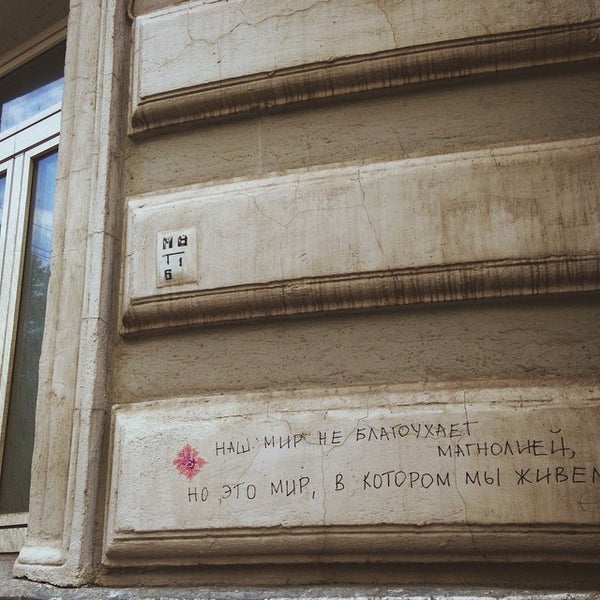 МВ
Т 1
6
НАШ МИР НЕ БЛАГОУХАЕТ
МАГНОЛИЕЙ,
НО ЭТО МИР, В КОТОРОМ МЫ ЖИВЕМ